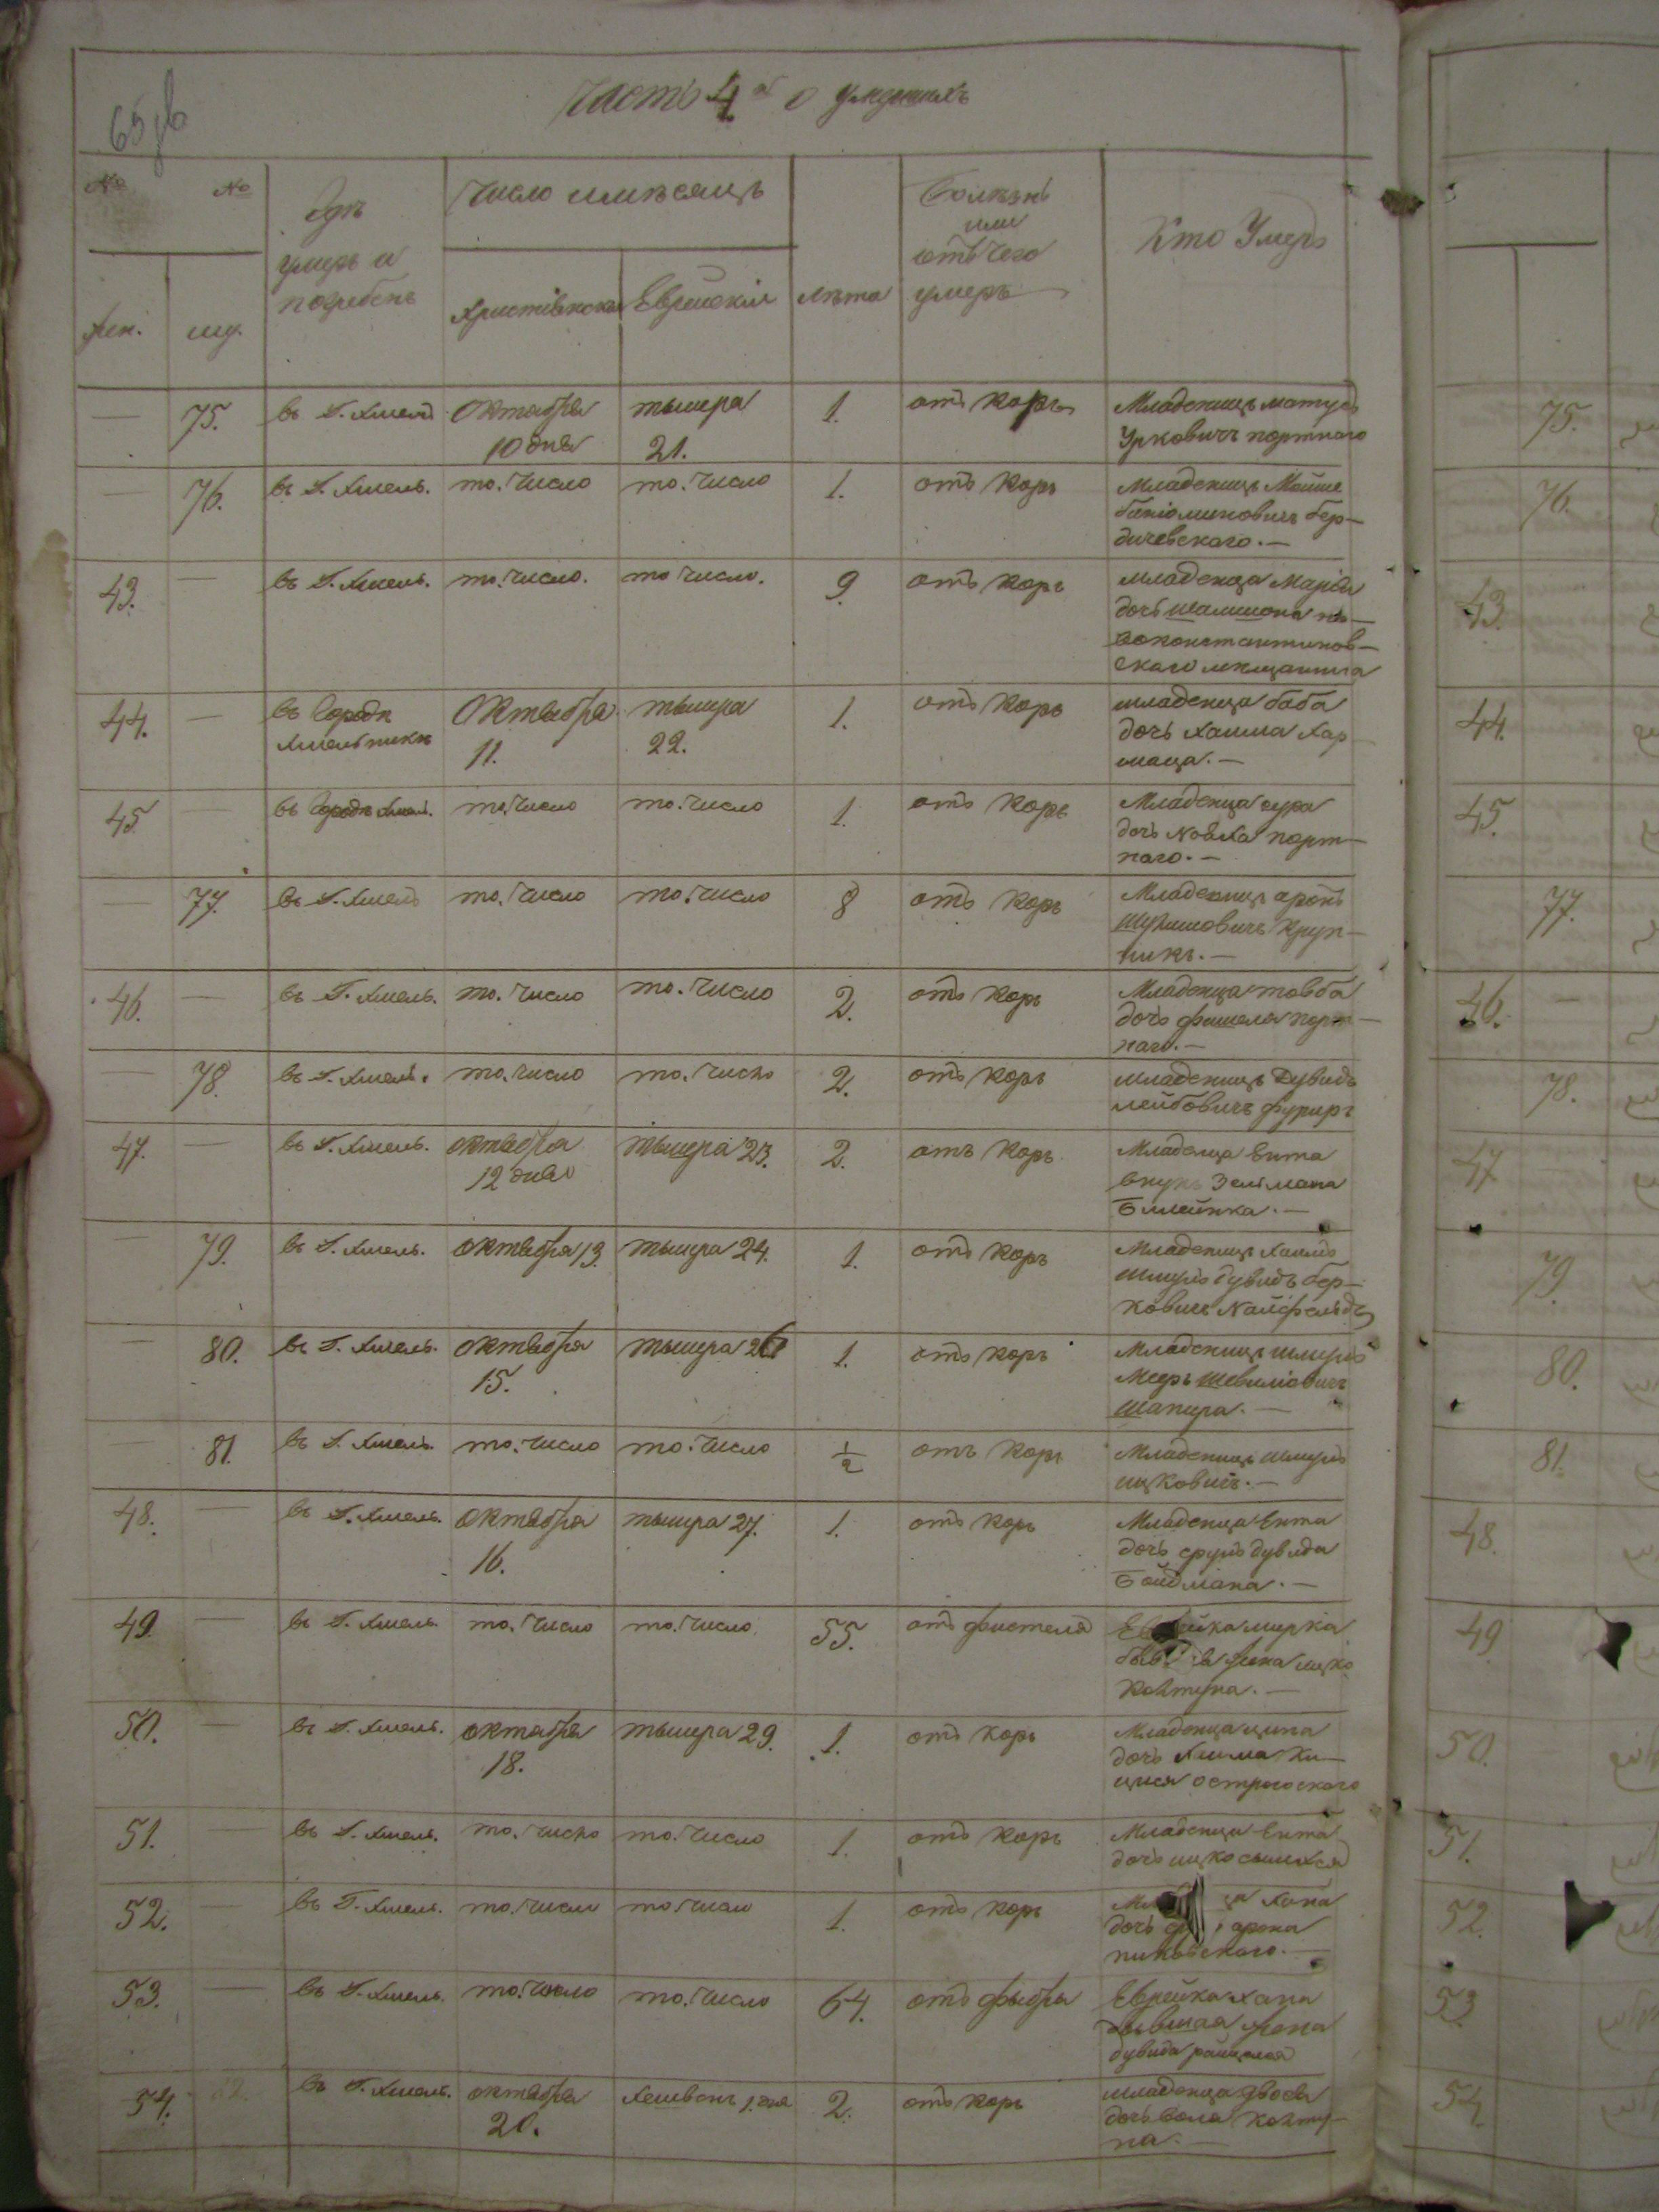 65 об
Часть 4я о умершихъ
№ №
Гдѣ
умеръ и
погребенъ
Число и мѣсяцъ
Болѣзнь
или
отъ чего
умеръ
Кто Умеръ
жен. муж. Христіянскія Еврейскія Лѣта
75. въ Г. Хмель Октября тышера 1. отъ корь Младенецъ мотусъ
10 дня 21. Урковичъ портного
76. въ Г. Хмель. то. число то. число 1. отъ корь Младенецъ Мойше
биніоминовичъ бер-
дичевского. —
43. въ Г. Хмель. то. число. то число. 9. отъ корь младенца Маріям
дочь шамшона но-
воконстантинов-
скаго мѣщанина
44. въ Городѣ Октября тышера 1. отъ корь младенца баба
Хмельникѣ 11. 22. дочь хаима хар
маца. —
45 въ Городѣ Хмель. то. число то. число 1. отъ корь Младенца сура
дочь новха порт-
наго. —
77. въ Г. Хмель то. число то. число 8 отъ корь Младенецъ аронъ
Шулимовичъ Круп-
никъ. —
46. въ Г. Хмель. то. число то. число 2. отъ корь Младенца товба
дочь фишеля порт-
наго. —
78. въ Г. Хмель. то. число то. число 2. отъ корь младенецъ Дувидъ
лейбовичъ фуреръ
47. въ Г. Хмель. октября тышера 23. 2. отъ корь Младенца Ента
12 дня внук Зельмана
79. въ Г. Хмель. октября 13. тышера 24. 1. отъ корь Младенецъ Хаимъ
Шмуль дувидъ бер-
ковичъ Найфельдъ
80. въ Г. Хмель. октября тышера 26 1. отъ корь Младенецъ шмуль
15. Мееръ
шапира. —
81. въ Г. Хмель. то. число то. число 1/2 отъ корь Младенецъ шмуль
ицковичъ. —
48. въ Г. Хмель. октября тышера 27. 1. отъ корь Младенца Ента
16. дочь сруль дувида
Бойдмана. —
49. въ Г. Хмель. то. число то. число 55. отъ фистеля мирка
жена ицко
Ковтуна. —
50. въ Г. Хмель. октября тышера 29. 1. отъ корь Младенца ципа
18. дочь хаима
острогоского
51. въ Г. Хмель. то. число то. число 1. отъ корь Младенца Ента
дочь ицко
52. въ Г. Хмель. то. число то число 1. отъ корь хана
дочь арона
пиковского. —
53. въ Г. Хмель. то. число то. число 64. отъ фыбры Еврейка хана
бывшая жена
дувида
54. въ Г. Хмель. октября Хешванъ 1. дня 2. отъ корь младенца двося
20. дочь вола Ковту-
на. —
75.
76.
43.
44.
45.
77.
46.
78.
47
79.
80.
81.
48.
49
50.
51.
52.
53
54